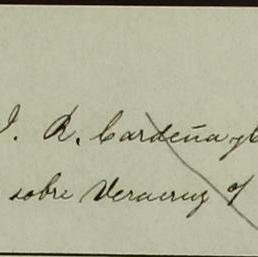 J. R. Cardeña y C
sobre Veracruz of